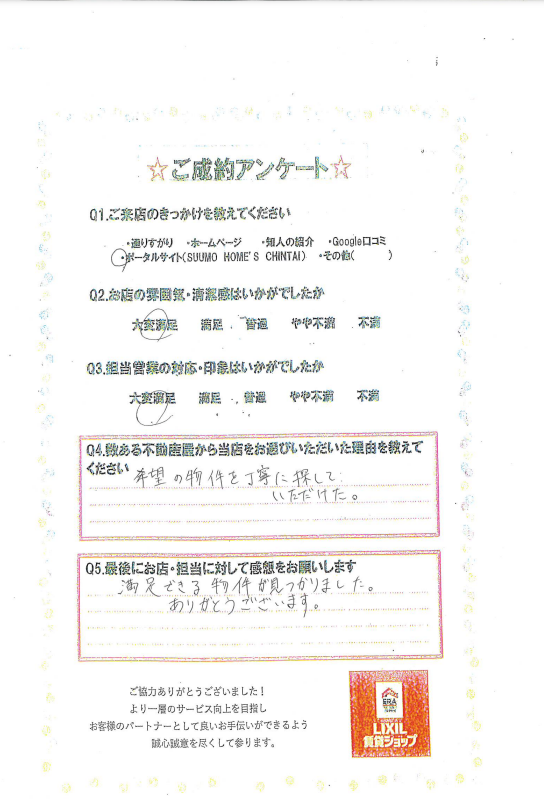 ☆ご成約アンケート☆
Q1.ご来店のきっかけを教えてください
・通りすがり ・ホームページ ・知人の紹介 ・Google口コミ
・ポータルサイト(SUUMO HOME'S CHINTAI) ・その他( )
Q2.お店の雰囲気・清潔感はいかがでしたか
大変満足 満足 普通 やや不満 不満
Q3.担当営業の対応・印象はいかがでしたか
大変満足 満足 普通 やや不満 不満
Q4.数ある不動産屋から当店をお選びいただいた理由を教えて
ください
希望の物件を丁寧に探して
いただけた。
Q5.最後にお店・担当に対して感想をお願いします
満足できる物件が見つかりました。
ありがとうございます。
ご協力ありがとうございました!
より一層のサービス向上を目指し
お客様のパートナーとして良いお手伝いができるよう
誠心誠意を尽くして参ります。
ERA
LIXIL
賃貸ショップ